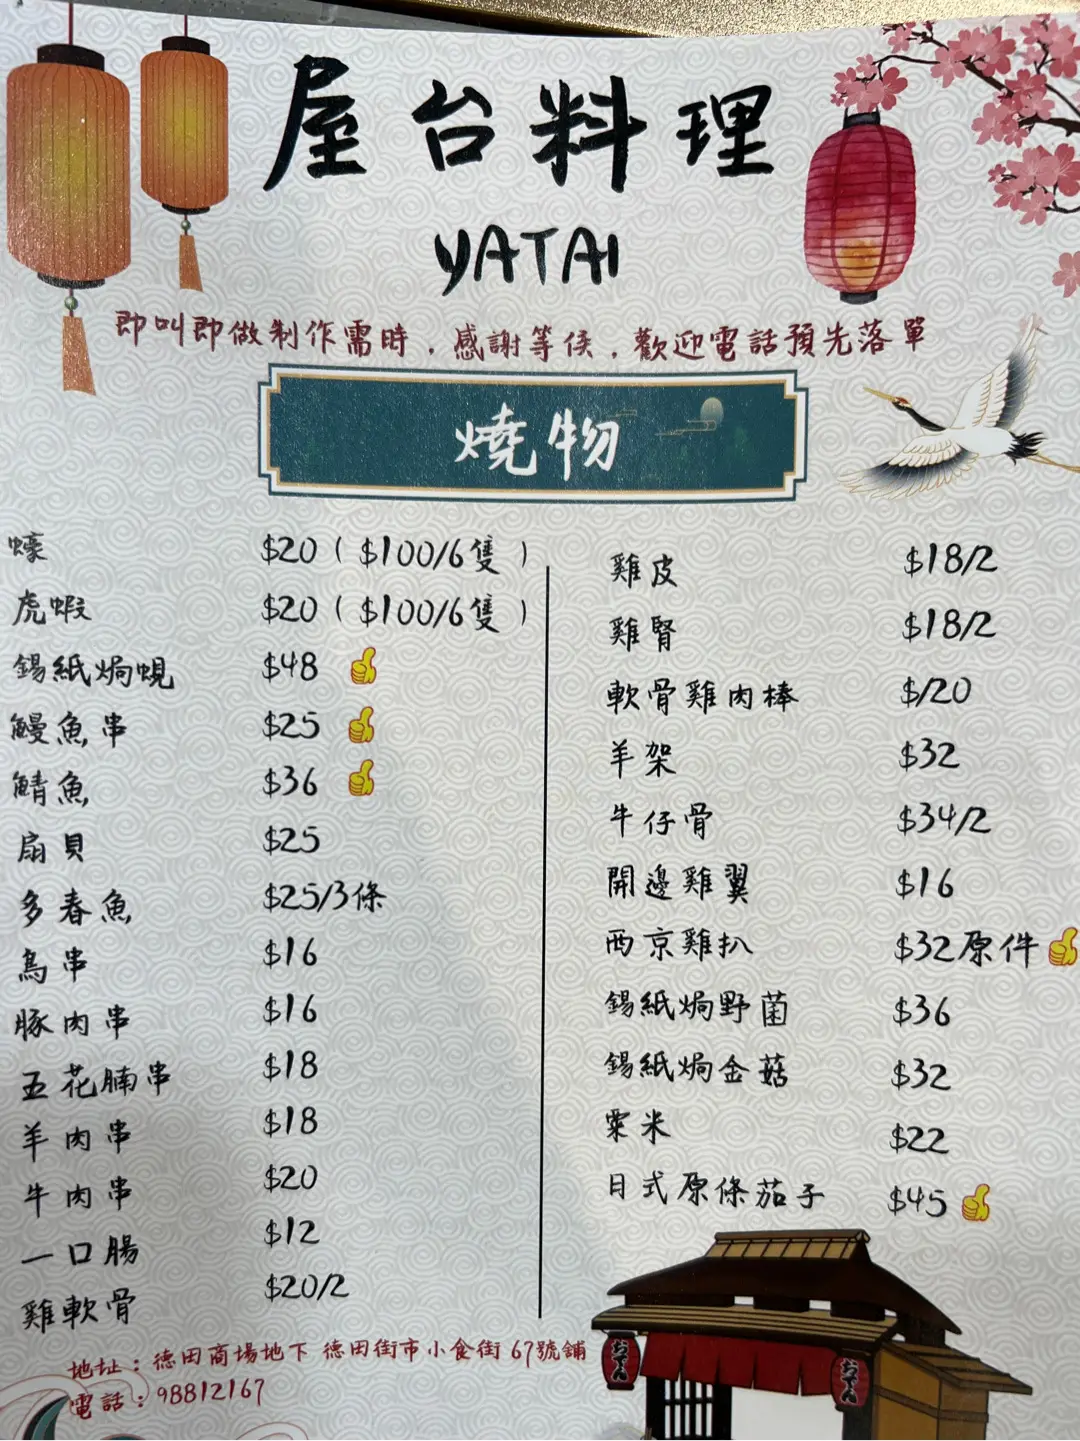 屋台料理
YATAI
即叫即做制作需時，感謝等侯，歡迎電話預先落單
燒物
蠔 $20（$100/6隻）
虎蝦 $20（$100/6隻）
錫紙焗蜆 $48
鰻魚串 $25
鯖魚 $36
扇貝 $25
多春魚 $25/3條
鳥串 $16
豚肉串 $16
五花腩串 $18
羊肉串 $18
牛肉串 $20
一口腸 $12
雞軟骨 $20/2
雞皮 $18/2
雞腎 $18/2
軟骨雞肉棒 $/20
羊架 $32
牛仔骨 $34/2
開邊雞翼 $16
西京雞扒 $32原件
錫紙焗野菌 $36
錫紙焗金菇 $32
粟米 $22
日式原條茄子 $45
地址：德田商場地下 德田街市小食街 67號舖
電話：98812167
おでん
おでん